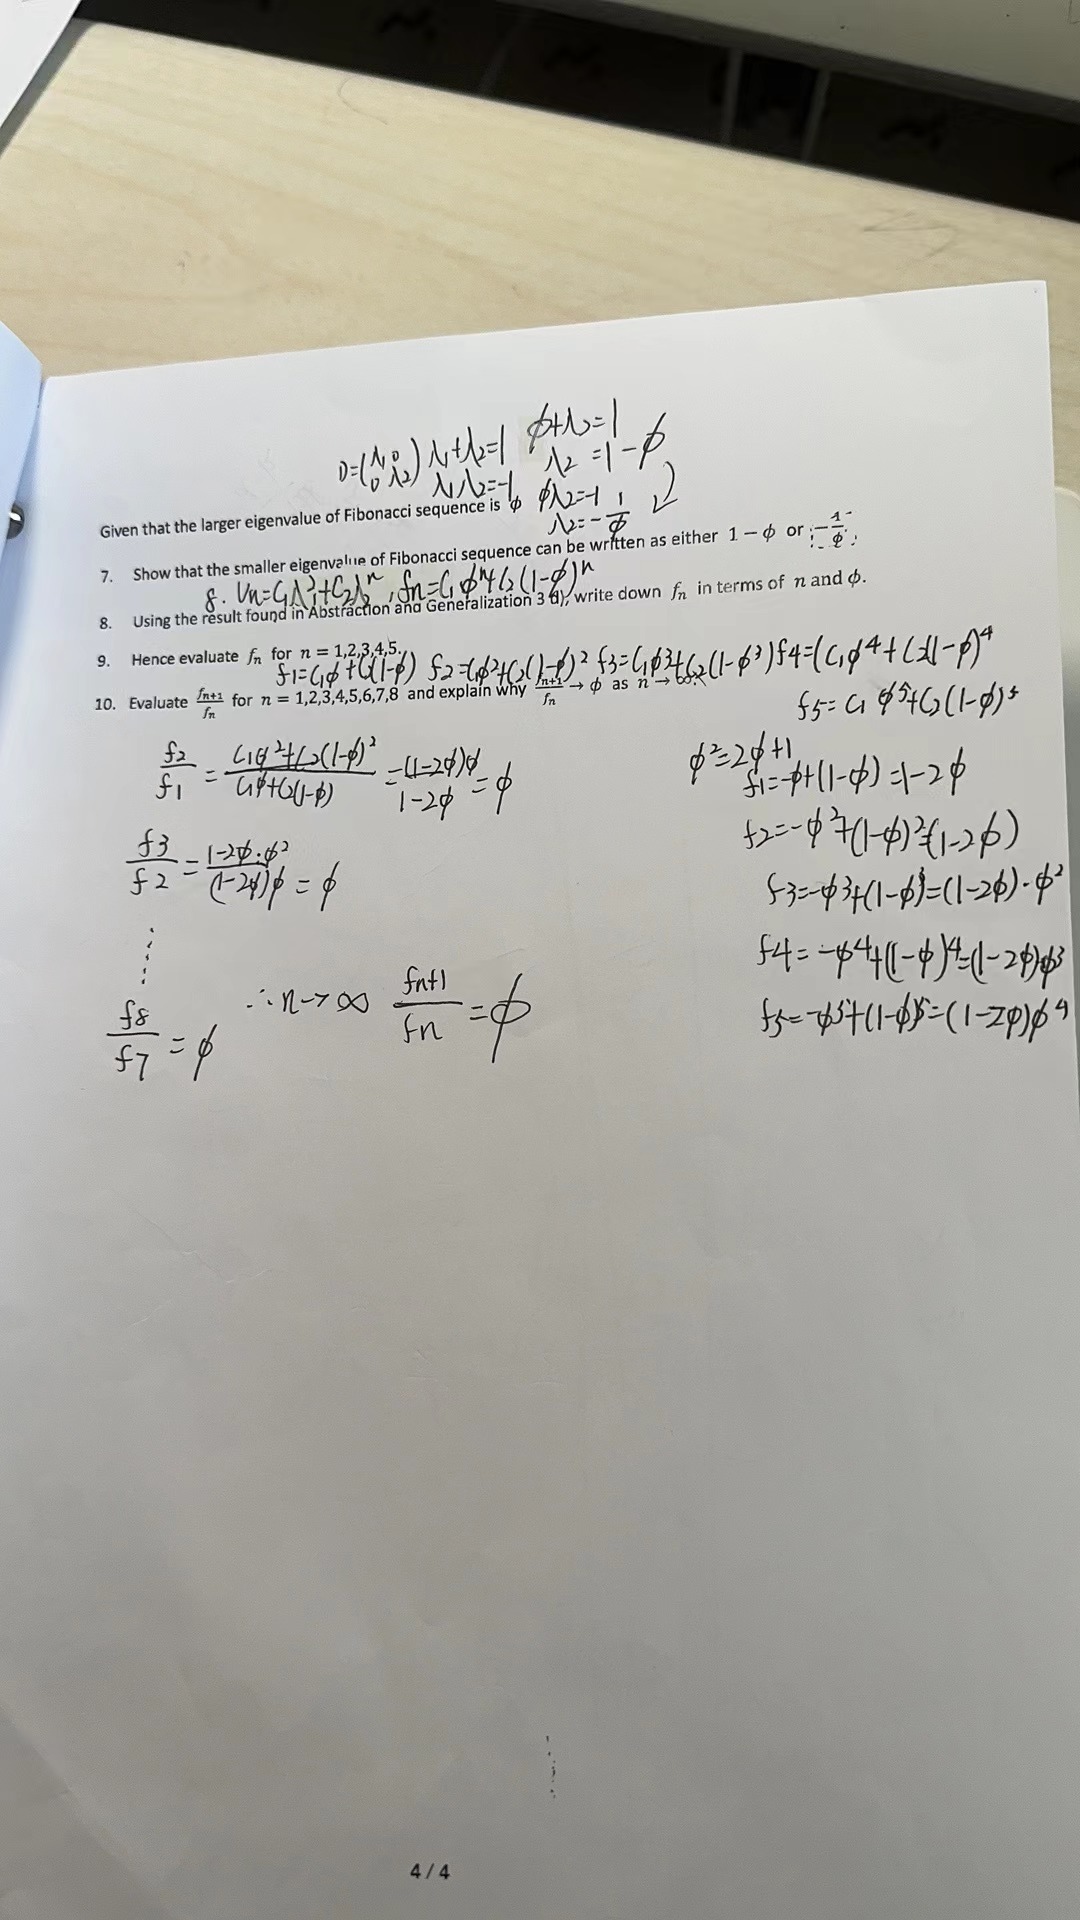 D=(λ₁ 0 0 λ₂) λ₁+λ₂=1 φ+λ₂=1
λ₁λ₂=-1 λ₂=1-φ
Given that the larger eigenvalue of Fibonacci sequence is φ φλ₂=-1
λ₂=-1/φ
7. Show that the smaller eigenvalue of Fibonacci sequence can be written as either 1 − φ or −1/φ.
8. Un=C₁λ₁ⁿ+C₂λ₂ⁿ, fn=C₁φⁿ+C₂(1-φ)ⁿ
8. Using the result found in Abstraction and Generalization 3 d), write down fₙ in terms of n and φ.
9. Hence evaluate fₙ for n = 1,2,3,4,5.
f1=C₁φ+C₂(1-φ) f2=C₁φ²+C₂(1-φ)² f3=C₁φ³+C₂(1-φ³) f4=(C₁φ⁴+C₂(1-φ)⁴
10. Evaluate fₙ₊₁/fₙ for n = 1,2,3,4,5,6,7,8 and explain why fₙ₊₁/fₙ → φ as n → ∞.
f5=C₁φ⁵+C₂(1-φ)⁵
f2/f1 = C₁φ²+C₂(1-φ)²/C₁φ+C₂(1-φ) = -(1-2φ)φ/1-2φ = φ
φ²=2φ+1
f1=-φ+(1-φ)=1-2φ
f2=-φ²+(1-φ)²=(1-2φ)
f3/f2 = 1-2φ·φ²/(1-2φ)φ = φ
f3=-φ³+(1-φ)³=(1-2φ)·φ²
f4=-φ⁴+(1-φ)⁴=(1-2φ)φ³
f8/f7 = φ ∴n→∞ fn+1/fn = φ
f5=-φ⁵+(1-φ)⁵=(1-2φ)φ⁴
4 / 4